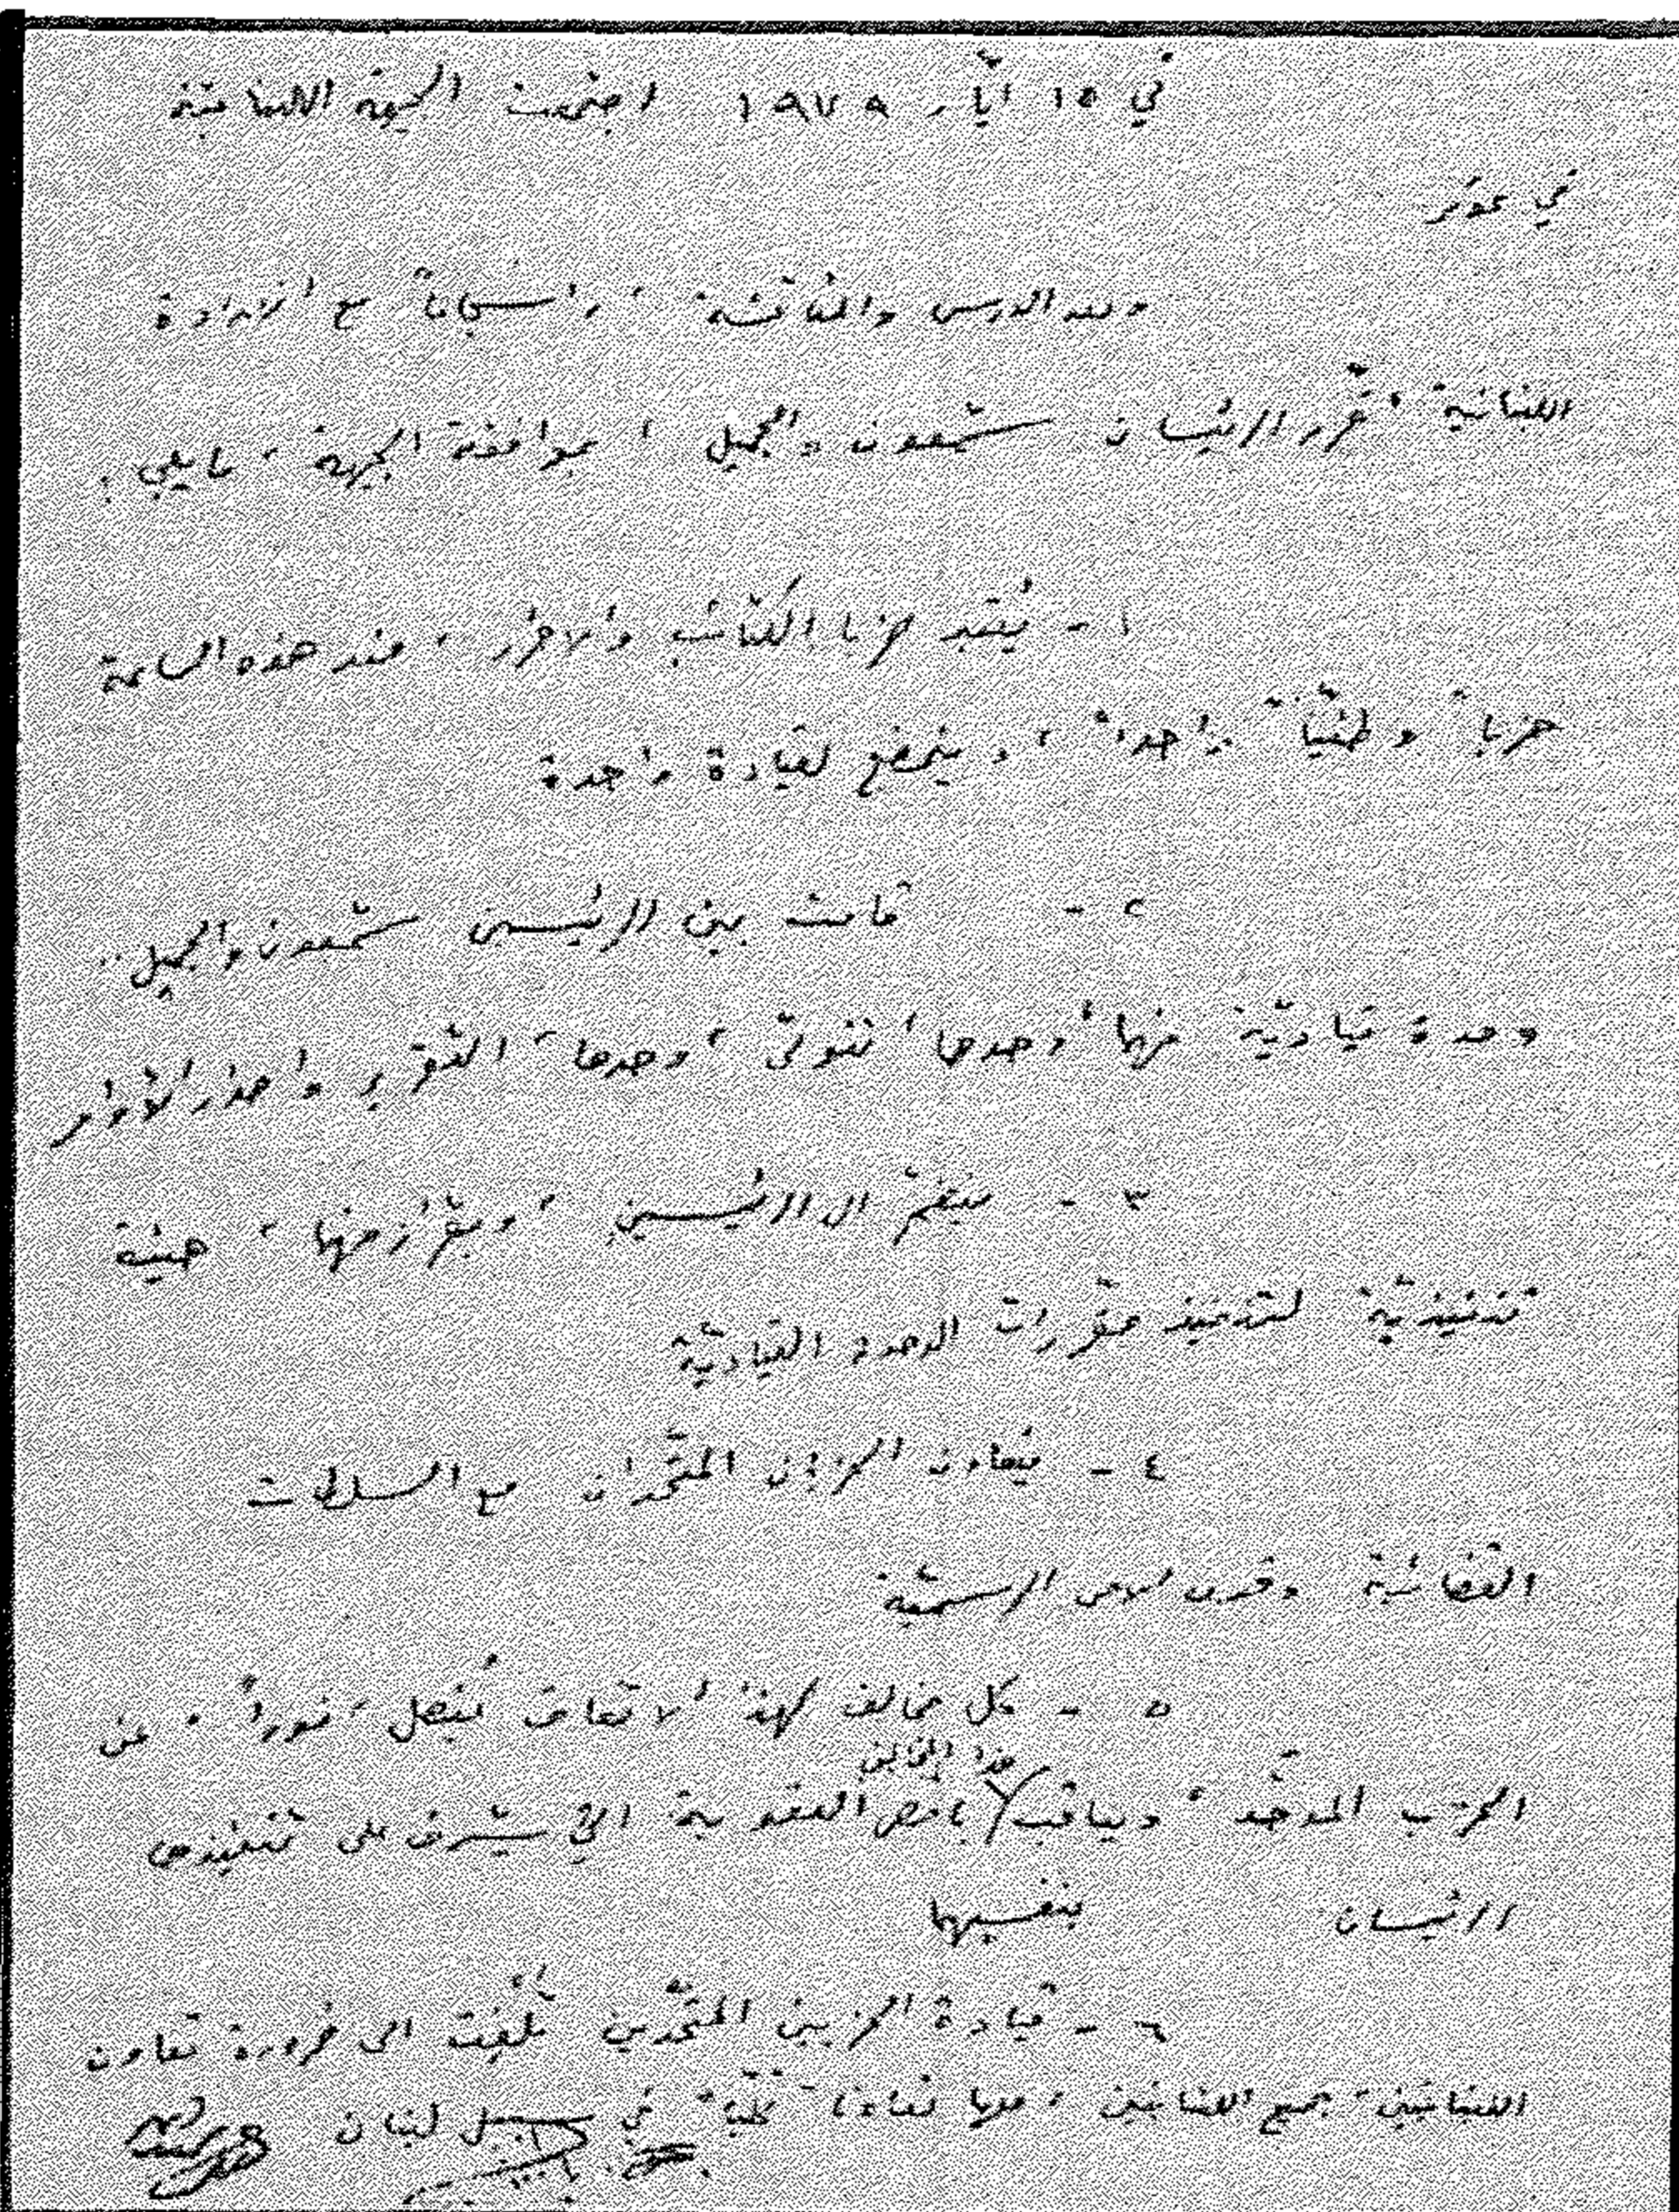 في ١٥ أيّار ١٩٧٩ اجتمعت الجبهة اللبنانية
في عوكر
وبعد الدرس والمناقشة، وانسجاماً مع الارادة
اللبنانية، قرّر الرئيسان شمعون والجميل، بموافقة الجبهة، ما يلي:
١ - يُعتبر حزبا الكتائب والاحرار، منذ هذه الساعة
حزباً وطنيّاً واحداً، ويخضع لقيادة واحدة
٢ - قامت بين الرئيسين شمعون والجميل..
وحدة قياديّة منهما، وحدهما، تتولّى، وحدها، التقرير واصدار الأوامر
٣ - ينضمّ الى الرئيسين، وبقرار منهما، هيئة
تنفيذيّة لتنفيذ مقررات الوحدة القياديّة
٤ - يتعاون الحزبان المتّحدان مع السلطات
القضائية وقوى الامن الرسميّة
٥ - كل مخالف لهذا الاتفاق يُفصل، فوراً، عن
هذا المخالف
الحزب الموحّد، ويعاقب بأقصى العقوبة التي يشرف على تنفيذها
الرئيسان بنفسيهما
٦ - قيادة الحزبين المتّحدين تُلفت الى ضرورة تعاون
اللبنانيّين، جميع اللبنانيّين، معها تعاوناً كليّاً في سبيل لبنان